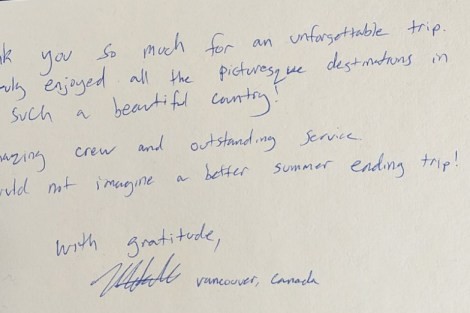 nk you so much for an unforgettable trip.
uly enjoyed all the picturesque destinations in
such a beautiful country!
azing crew and outstanding service.
uld not imagine a better summer ending trip!
With gratitude,
Vancouver, Canada